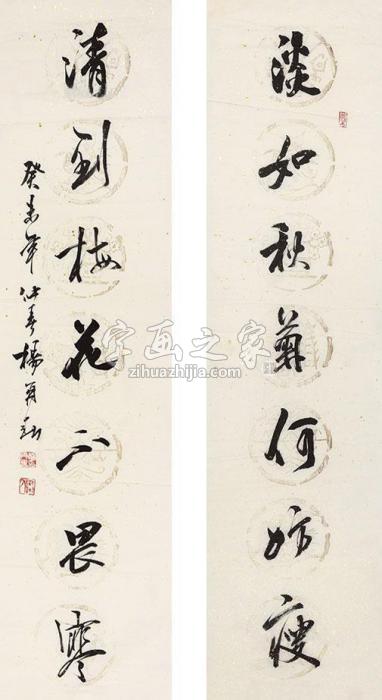 淡如秋菊何妨瘦
清到梅花不畏寒
癸未年仲春楊
字画之家
zihuazhijia.com